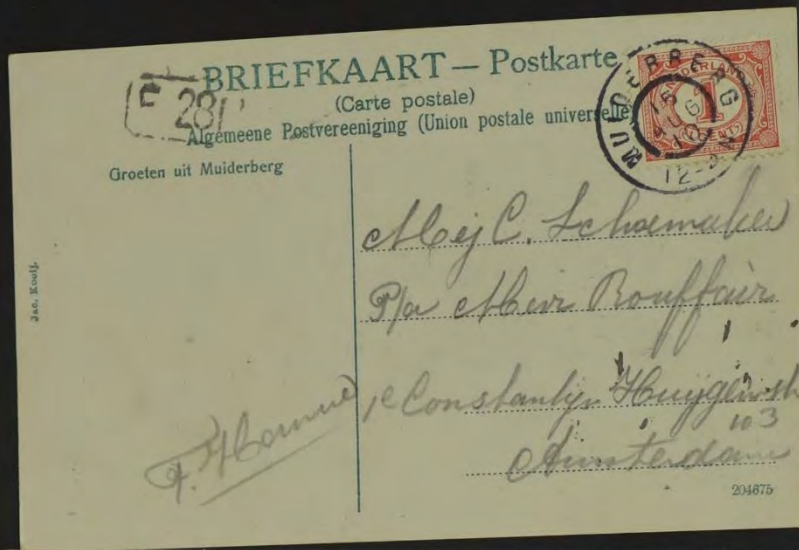 BRIEFKAART — Postkarte
(Carte postale)
Algemeene Postvereeniging (Union postale universelle)
F 28
MUIDERBERG
12-
Groeten uit Muiderberg
Mej C. Schoemaker
P/a Mevr Bouffair
1e Constantijn Huygenstr
103
Amsterdam
Jac. Kooij.
204675